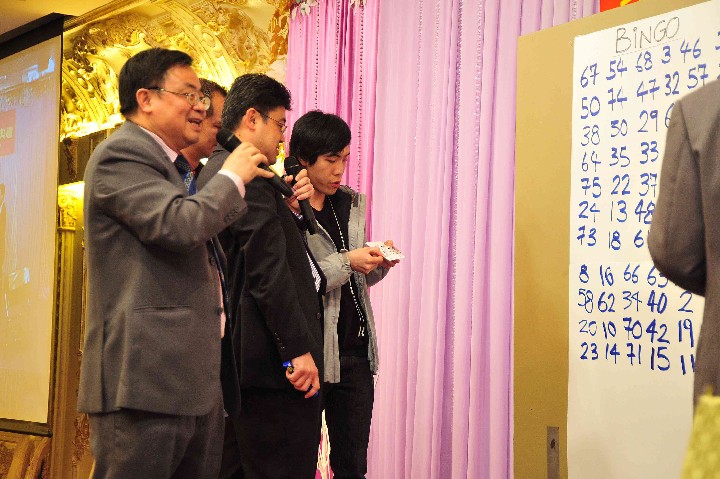 BINGO
67 54 68 3 46
50 74 47 32 57
38 30 29
64 35 33
75 22 37
24 13 48
73 18
8 16 66 65
58 62 34 40 2
20 10 70 42 19
23 14 71 15 11